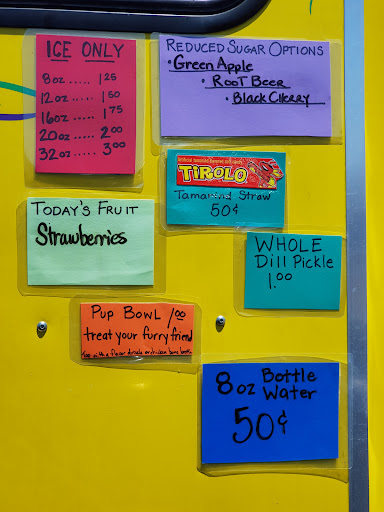 ICE ONLY
8oz ..... 1 25
12oz ..... 1 50
16oz ..... 1 75
20oz ... 2 00
32oz ... 3 00
REDUCED SUGAR OPTIONS
• Green Apple
• Root Beer
• Black Cherry
TIROLO
Tamarind Straw
50¢
TODAY'S FRUIT
Strawberries
WHOLE
Dill Pickle
1.00
PUP BOWL 1.00
treat your furry friend
8oz Bottle
Water
50¢